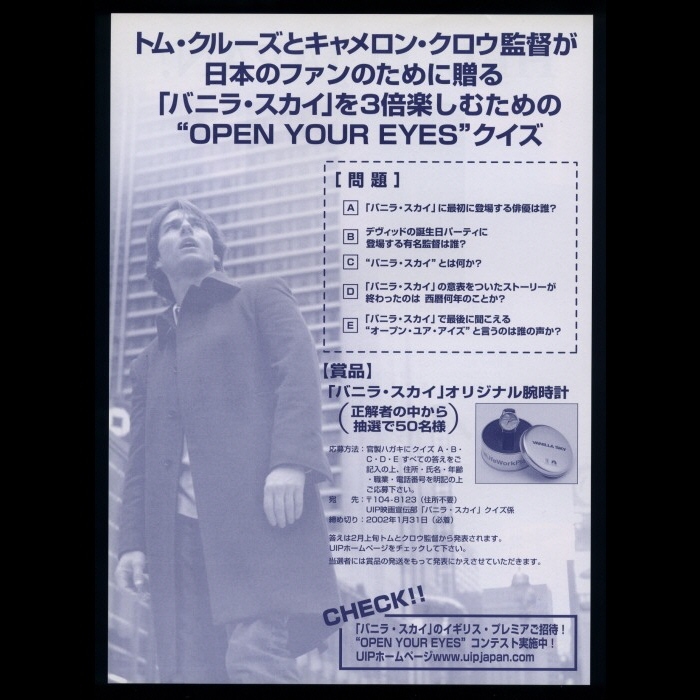 トム・クルーズとキャメロン・クロウ監督が
日本のファンのために贈る
「バニラ・スカイ」を3倍楽しむための
“OPEN YOUR EYES”クイズ
[ 問 題 ]
A 「バニラ・スカイ」に最初に登場する俳優は誰?
B デヴィッドの誕生日パーティに
登場する有名監督は誰?
C “バニラ・スカイ” とは何か?
D 「バニラ・スカイ」の意表をついたストーリーが
終わったのは 西暦何年のことか?
E 「バニラ・スカイ」で最後に聞こえる
“オープン・ユア・アイズ” と言うのは誰の声か?
【賞品】
「バニラ・スカイ」オリジナル腕時計
(正解者の中から
抽選で50名様)
VANILLA SKY
応募方法:官製ハガキにクイズ A・B・
C・D・E すべての答えをご
記入の上、住所・氏名・年齢
・職業・電話番号を明記の上
ご応募下さい。
宛 先:〒104-8123(住所不要)
UIP映画宣伝部「バニラ・スカイ」クイズ係
締め切り:2002年1月31日(必着)
答えは2月上旬トムとクロウ監督から発表されます。
UIPホームページをチェックして下さい。
当選者には賞品の発送をもって発表にかえさせていただきます。
CHECK!!
「バニラ・スカイ」のイギリス・プレミアご招待!
“OPEN YOUR EYES” コンテスト実施中!
UIPホームページwww.uipjapan.com